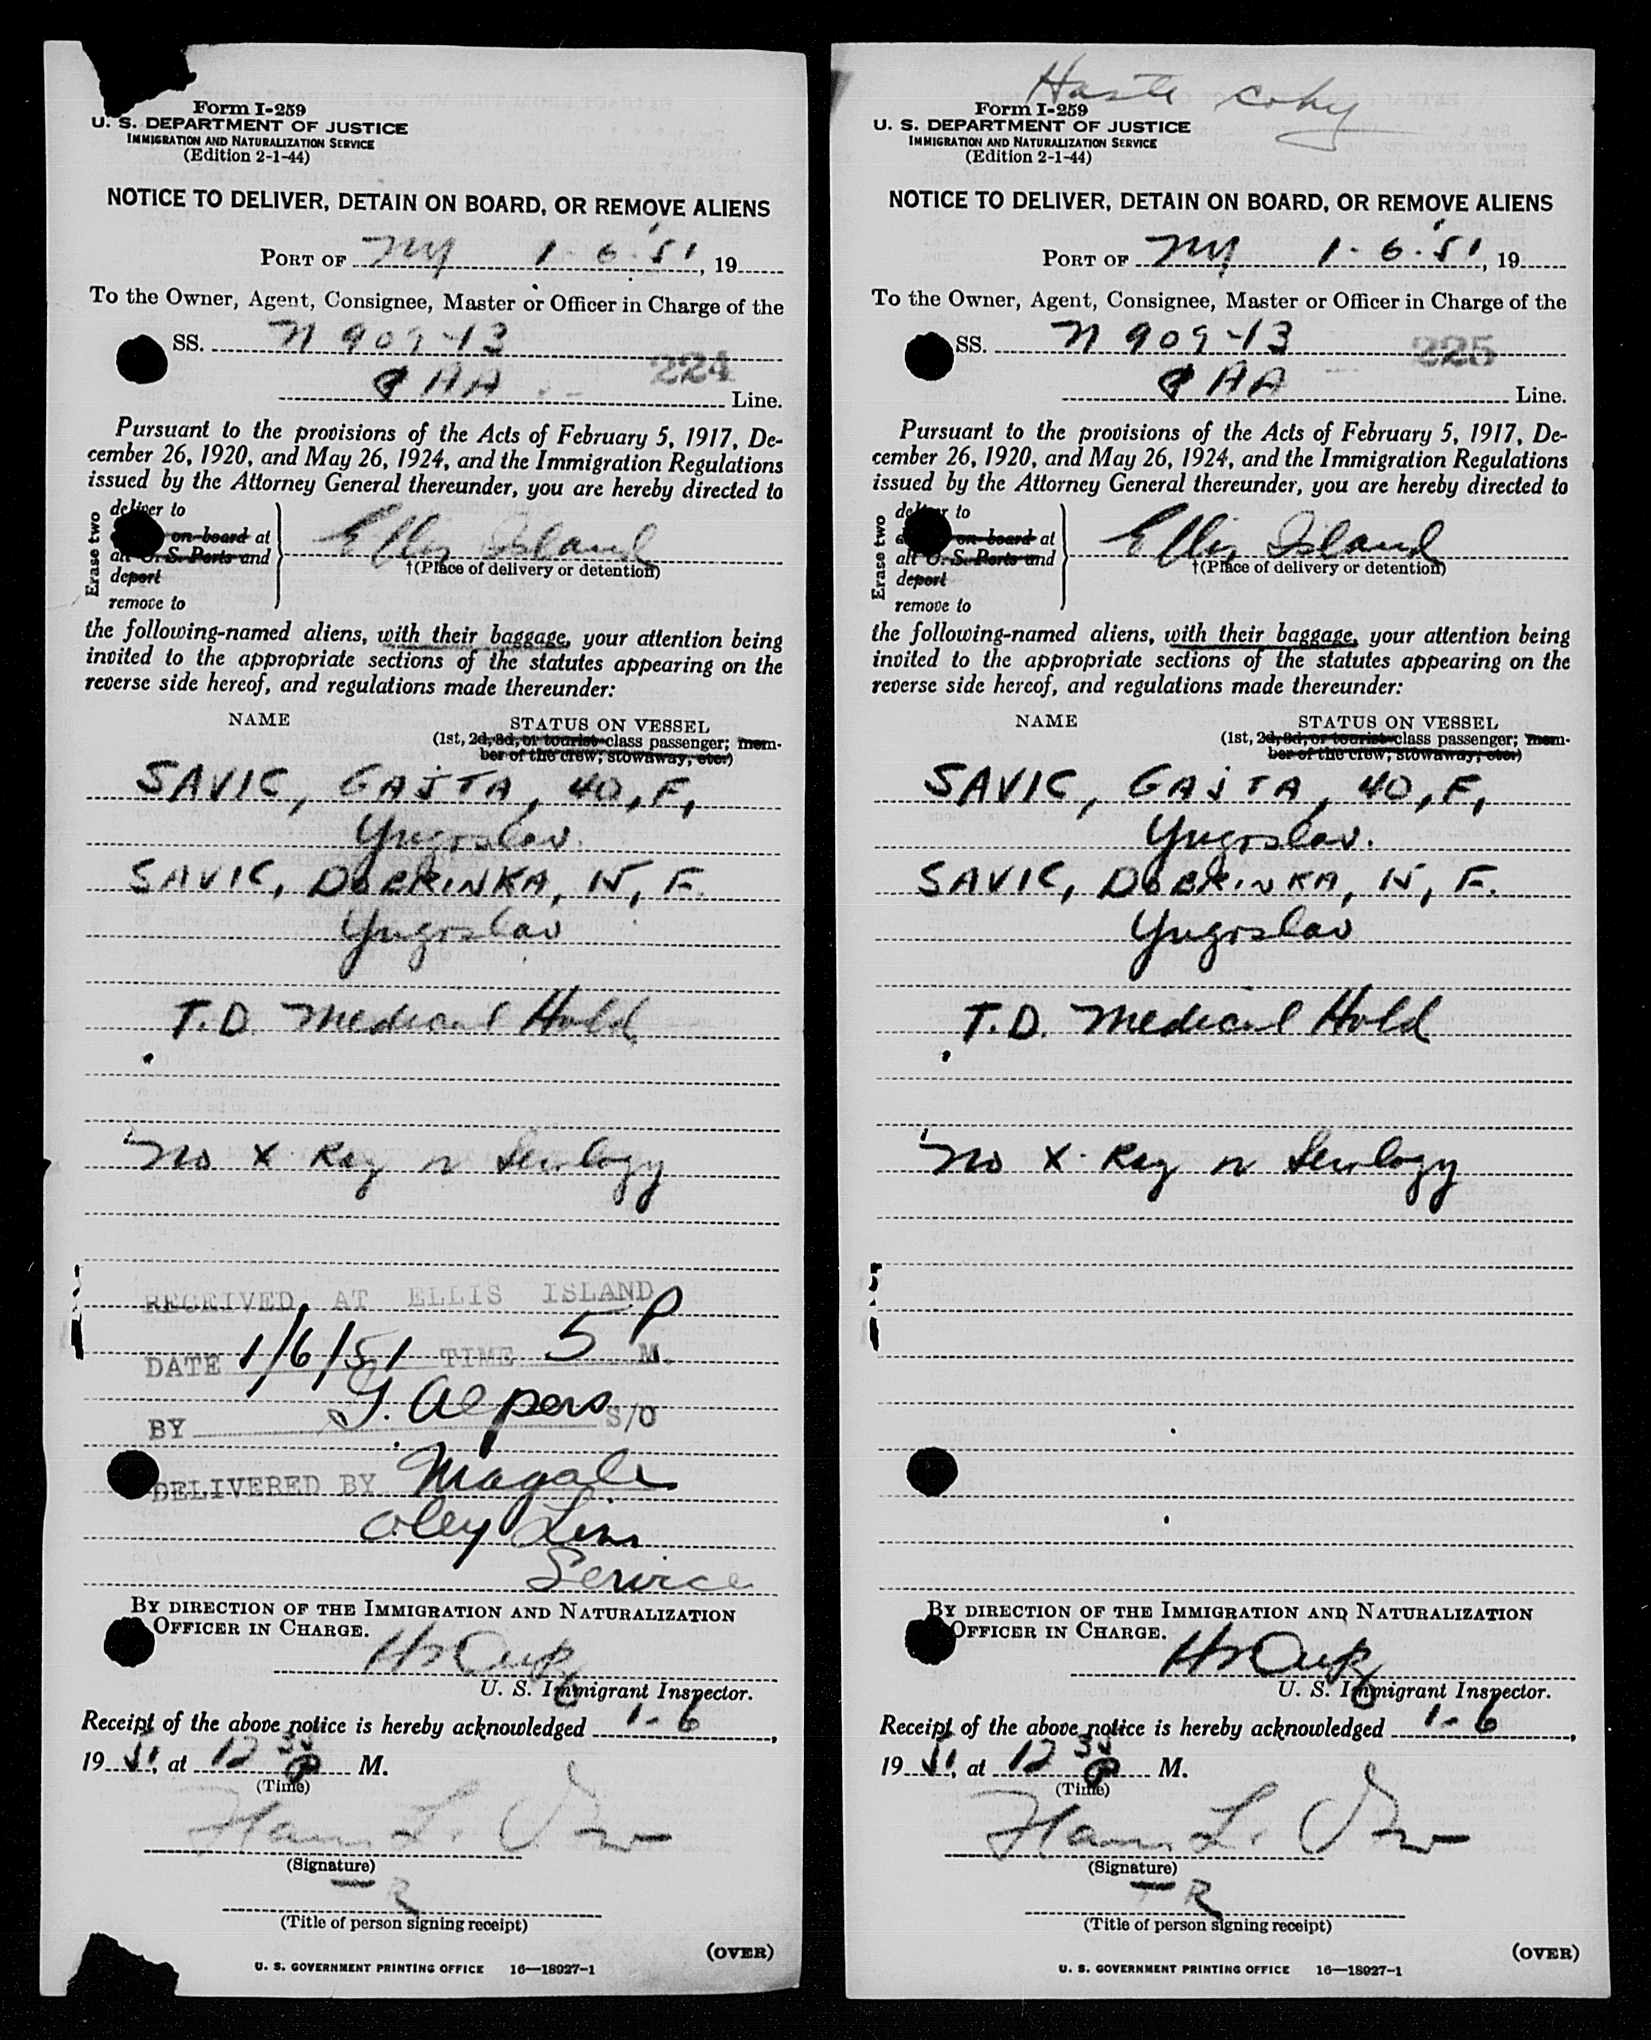 Form I-259
U. S. DEPARTMENT OF JUSTICE
IMMIGRATION AND NATURALIZATION SERVICE
(Edition 2-1-44)
NOTICE TO DELIVER, DETAIN ON BOARD, OR REMOVE ALIENS
PORT OF NY 1-6-51, 19
To the Owner, Agent, Consignee, Master or Officer in Charge of the
SS. N 909-13
224
PAA Line.
Pursuant to the provisions of the Acts of February 5, 1917, De-
cember 26, 1920, and May 26, 1924, and the Immigration Regulations
issued by the Attorney General thereunder, you are hereby directed to
Erase two
deliver to
on board at
all U. S. Ports and
deport
remove to
Ellis Island
†(Place of delivery or detention)
the following-named aliens, with their baggage, your attention being
invited to the appropriate sections of the statutes appearing on the
reverse side hereof, and regulations made thereunder:
NAME STATUS ON VESSEL
(1st, 2d, 3d, or tourist class passenger; mem-
ber of the crew; stowaway, etc.)
SAVIC, GAJTA, 40, F,
Yugoslav.
SAVIC, DOBRINKA, 15, F.
Yugoslav
T.D. Medical Hold
No X-Ray or Serology
RECEIVED AT ELLIS ISLAND
DATE 1/6/51 TIME 5 P M.
BY G. Alpers S/O
DELIVERED BY Magale
Service
BY DIRECTION OF THE IMMIGRATION AND NATURALIZATION
OFFICER IN CHARGE.
U. S. Immigrant Inspector.
Receipt of the above notice is hereby acknowledged 1-6,
19 51, at 12 35 P M.
(Time)
(Signature)
TR
(Title of person signing receipt)
(OVER)
U. S. GOVERNMENT PRINTING OFFICE 16—18027-1
Haste copy
Form I-259
U. S. DEPARTMENT OF JUSTICE
IMMIGRATION AND NATURALIZATION SERVICE
(Edition 2-1-44)
NOTICE TO DELIVER, DETAIN ON BOARD, OR REMOVE ALIENS
PORT OF NY 1-6-51, 19
To the Owner, Agent, Consignee, Master or Officer in Charge of the
SS. N 909-13
225
PAA Line.
Pursuant to the provisions of the Acts of February 5, 1917, De-
cember 26, 1920, and May 26, 1924, and the Immigration Regulations
issued by the Attorney General thereunder, you are hereby directed to
Erase two
deliver to
on board at
all U. S. Ports and
deport
remove to
Ellis Island
†(Place of delivery or detention)
the following-named aliens, with their baggage, your attention being
invited to the appropriate sections of the statutes appearing on the
reverse side hereof, and regulations made thereunder:
NAME STATUS ON VESSEL
(1st, 2d, 3d, or tourist class passenger; mem-
ber of the crew; stowaway, etc.)
SAVIC, GAJTA, 40, F,
Yugoslav.
SAVIC, DOBRINKA, 15, F.
Yugoslav
T.D. Medical Hold
No X-Ray or Serology
BY DIRECTION OF THE IMMIGRATION AND NATURALIZATION
OFFICER IN CHARGE.
U. S. Immigrant Inspector.
Receipt of the above notice is hereby acknowledged 1-6,
19 51, at 12 35 P M.
(Time)
(Signature)
TR
(Title of person signing receipt)
(OVER)
U. S. GOVERNMENT PRINTING OFFICE 16—18027-1